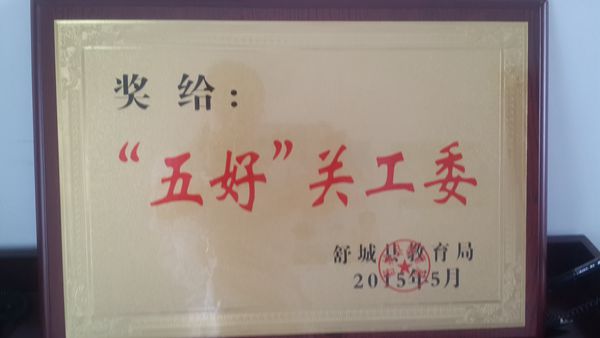 奖给：
“五好”关工委
舒城县教育局
2015年5月